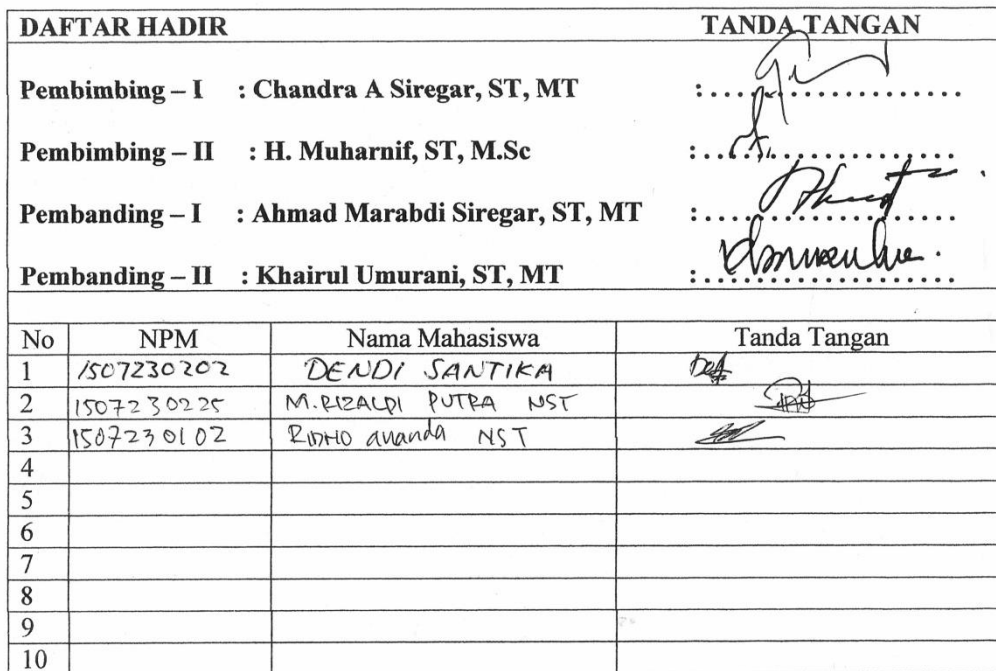 DAFTAR HADIR TANDA TANGAN
Pembimbing – I : Chandra A Siregar, ST, MT : ....................
Pembimbing – II : H. Muharnif, ST, M.Sc : ....................
Pembanding – I : Ahmad Marabdi Siregar, ST, MT : ....................
Pembanding – II : Khairul Umurani, ST, MT : ....................
No NPM Nama Mahasiswa Tanda Tangan
1 1507230202 DENDI SANTIKA
2 1507230225 M.RIZALDI PUTRA NST
3 1507230102 RIDHO ananda NST
4
5
6
7
8
9
10